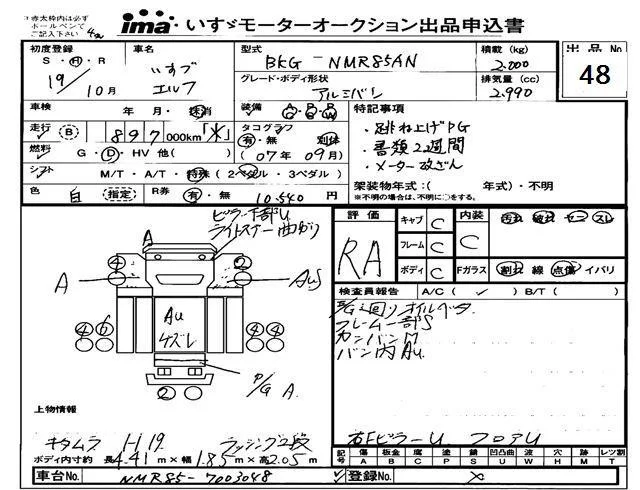 ※赤太枠内は必ず
ボールペンで
ご記入下さい
ima いすゞモーターオークション出品申込書
出品No
48
初度登録
S・H・R
19/10月
車名
いすゞ
エルフ
型式
BKG-NMR85AN
グレード・ボディ形状
アルミバン
積載(kg)
2.000
排気量(cc)
2.990
車検 年・月・抹消
走行 (B) 897,000km「火」
燃料 G・D・HV 他( )
シフト M/T・A/T・特殊(2ペダル・3ペダル)
色 白(指定) R券 有・無 10.540円
装備 A・P・R
C・S・W
タコグラフ
有・無 別体
(07年09月)
特記事項
・跳ね上げPG
・書類2週間
・メーター改ざん
架装物年式:( 年式)・不明
※不明の場合は、不明に○をする。
評価
RA
キャブ C
フレーム C
ボディ C
内装 C
汚れ 破れ コゲ スレ
Fガラス
割れ 線 点傷 イバリ
検査員報告 A/C(✓) B/T( )
フレーム一部S
カンバンM
バン内AU
右FピラーU フロアU
ピラー下部U
ライトステー曲がり
A
A
AU
AU
ケズレ
P/G A
④
④
④⑥
④④
②
②
上物情報
キタムラ H19 ラッシング2段
ボディ内寸約 長4.41m×幅1.85m×高2.05m
記号 傷 板金 腐 塗 錆 凹凸 波 穴 跡 レツ割
A B C P S U W H M T
車台No. NMR85-7003048
登録No. ×